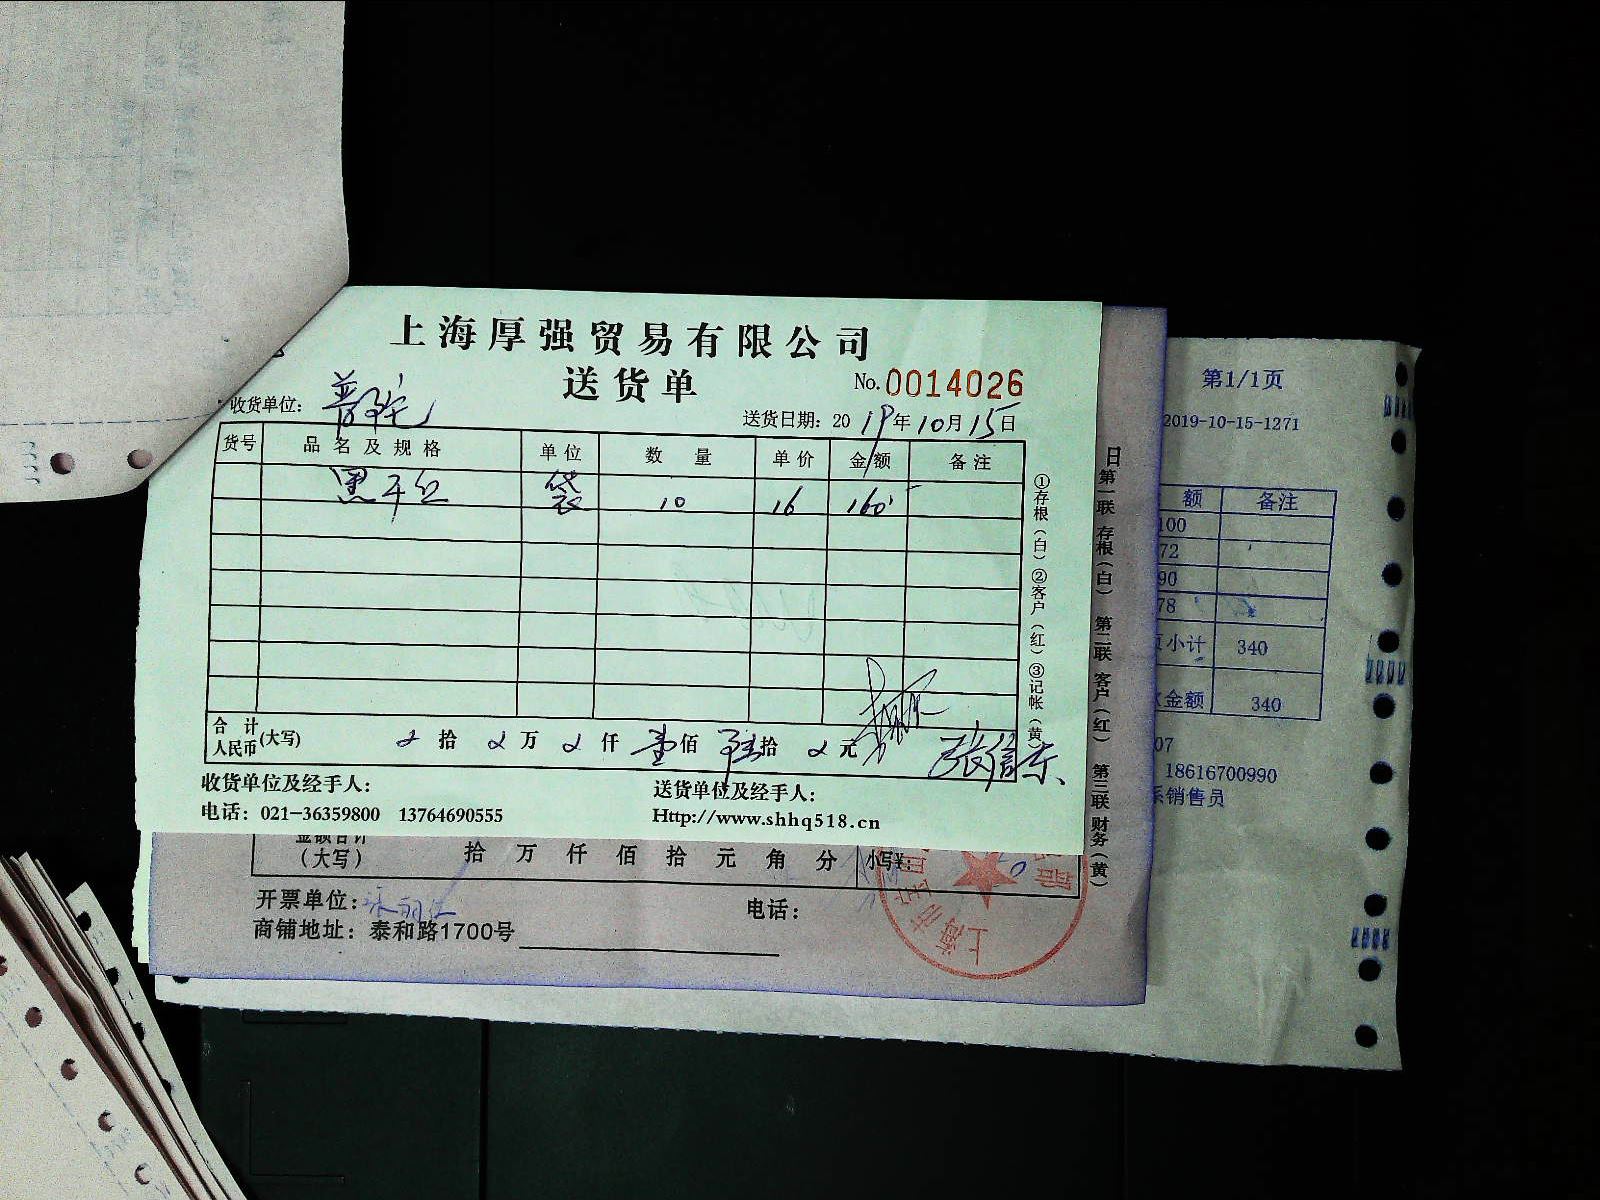 上海厚强贸易有限公司
送货单
No. 0014026
收货单位:
送货日期: 2019年10月15日
货号 品名及规格 单位 数量 单价 金额 备注
黑平 袋 10 16 160
合计人民币(大写) 拾 万 仟 壹佰 陆拾 元
张信东
收货单位及经手人:
送货单位及经手人:
电话: 021-36359800 13764690555
Http://www.shhq518.cn
①存根(白) ②客户(红) ③记帐(黄)
日
第一联 存根(白) 第二联 客户(红) 第三联 财务(黄)
金额合计
(大写) 拾 万 仟 佰 拾 元 角 分 小写¥:
开票单位:
电话:
商铺地址: 泰和路1700号
上海市宝
第1/1页
2019-10-15-1271
额 备注
100
72
90
78
小计 340
金额 340
07
18616700990
系销售员